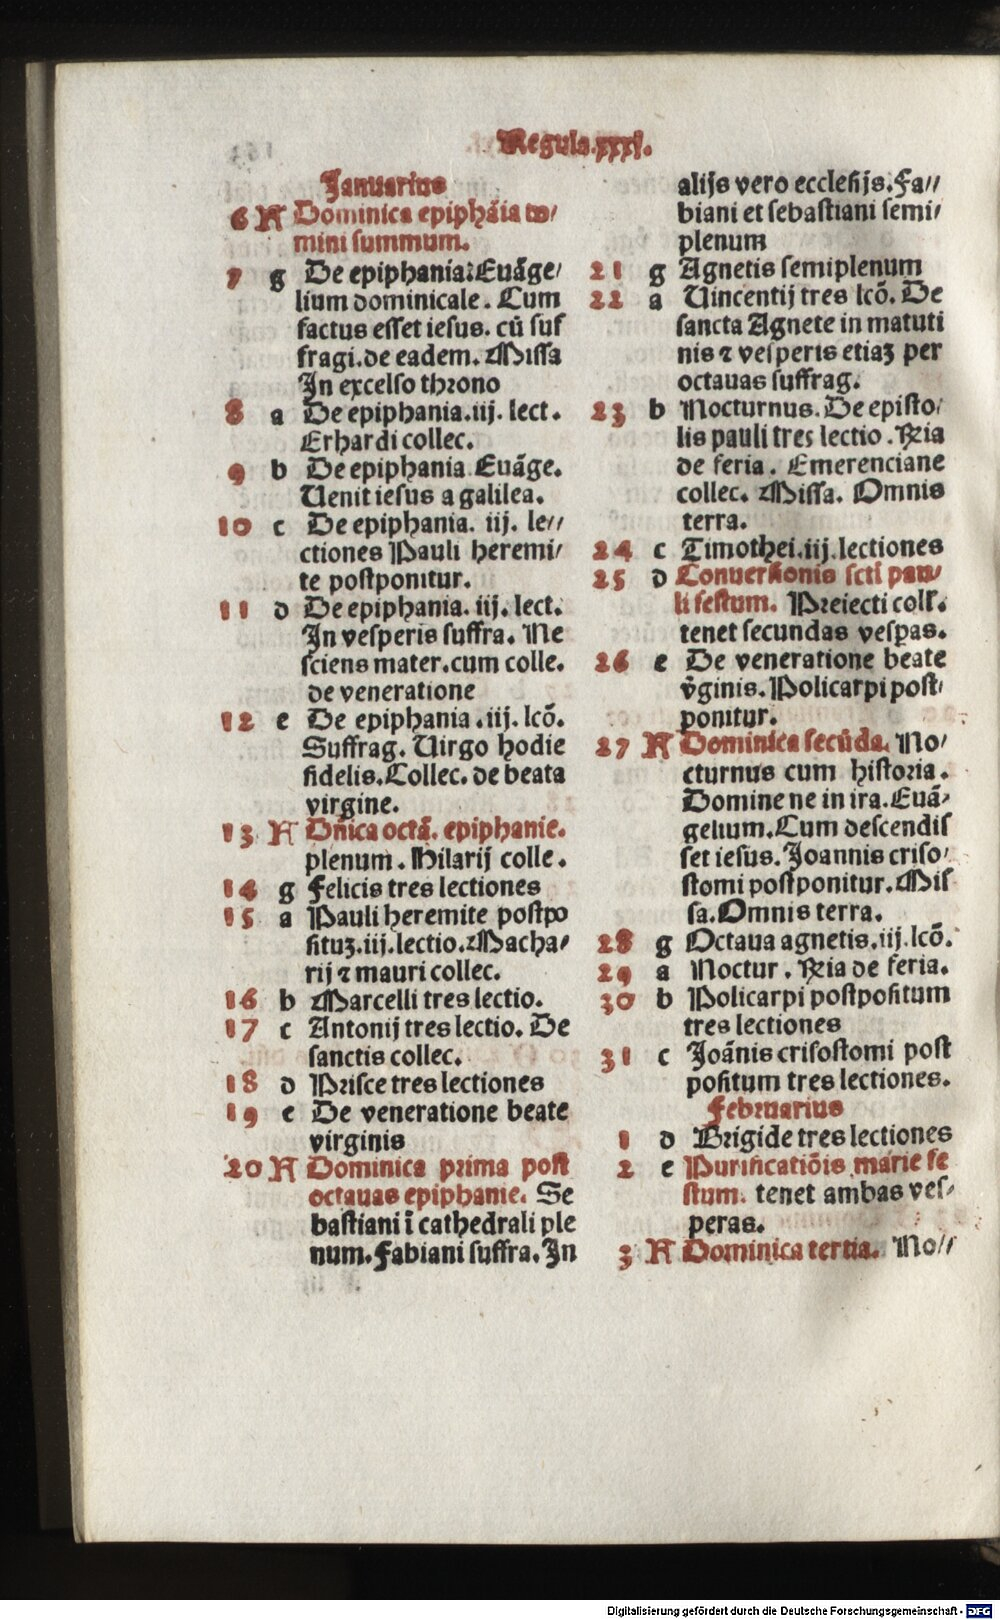 Regula.xxxj.
Januarius
6 A Dominica epiphāia do/
mini summum.
7 g De epiphania: Euāge/
lium dominicale. Cum
factus esset iesus. cū suf
fragi. de eadem. Missa
In excelso throno
8 a De epiphania. iij. lect.
Erhardi collec.
9 b De epiphania Euāge.
Uenit iesus a galilea.
10 c De epiphania. iij. le//
ctiones Pauli heremi/
te postponitur.
11 d De epiphania. iij. lect.
In vesperis suffra. Ne
sciens mater. cum colle.
de veneratione
12 e De epiphania . iij. lcō.
Suffrag. Uirgo hodie
fidelis. Collec. de beata
virgine.
13 A Dn̄ica octā. epiphanie.
plenum. Hilarij colle.
14 g Felicis tres lectiones
15 a Pauli heremite postpo
situʒ. iij. lectio. Macha/
rij ⁊ mauri collec.
16 b Marcelli tres lectio.
17 c Antonij tres lectio. De
sanctis collec.
18 d Prisce tres lectiones
19 e De veneratione beate
virginis
20 A Dominica prima post
octauas epiphanie. Se
bastiani ī cathedrali ple
num. Fabiani suffra. In
alijs vero ecclesijs. Fa//
biani et sebastiani semi/
plenum
21 g Agnetis semiplenum
22 a Uincentij tres lcō. De
sancta Agnete in matuti
nis ⁊ vesperis etiaʒ per
octauas suffrag.
23 b Nocturnus. De episto/
lis pauli tres lectio. R̄ria
de feria. Emerenciane
collec. Missa. Omnis
terra.
24 c Timothei. iij. lectiones
25 d Conuersionis scti pau/
li festum. Preiecti coll̄.
tenet secundas vesꝑas.
26 e De veneratione beate
v̄ginis. Policarpi post/
ponitur.
27 A Dominica secūda. No/
cturnus cum historia.
Domine ne in ira. Euā/
gelium. Cum descendis
set iesus. Joannis criso/
stomi postponitur. Mis
sa. Omnis terra.
28 g Octaua agnetis. iij. lcō.
29 a Noctur. R̄ria de feria.
30 b Policarpi postpositum
tres lectiones
31 c Joānis crisostomi post
positum tres lectiones.
Februarius
1 d Brigide tres lectiones
2 e Purificatiōis marie fe
stum. tenet ambas ves/
peras.
3 A Dominica tertia. No//
Digitalisierung gefördert durch die Deutsche Forschungsgemeinschaft - DFG